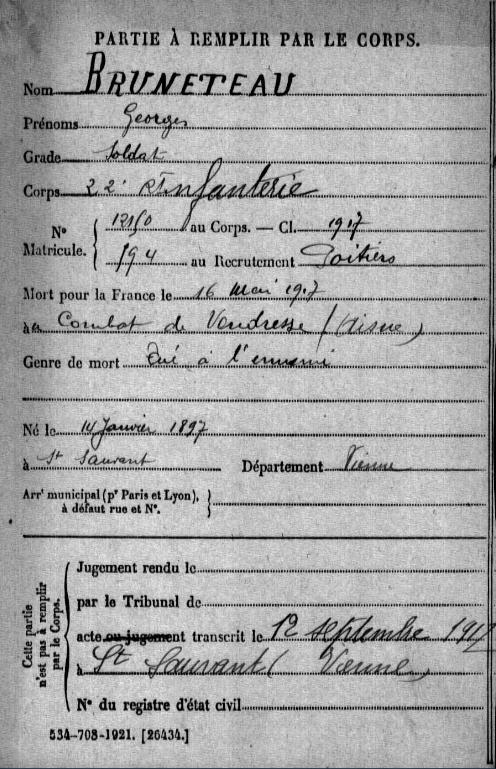 PARTIE À REMPLIR PAR LE CORPS.
Nom BRUNETEAU
Prénoms Georges
Grade Soldat
Corps 22e d'Infanterie
N° Matricule. { 12150 au Corps. — Cl. 1917
194 au Recrutement Poitiers
Mort pour la France le 16 Mai 1917
à Combat de Vendresse (Aisne)
Genre de mort Tué à l'ennemi
Né le 14 Janvier 1897
à St Sauvant Département Vienne
Arrt municipal (pr Paris et Lyon), à défaut rue et N°. }
Cette partie n'est pas à remplir par le Corps.
Jugement rendu le
par le Tribunal de
acte ou jugement transcrit le 12 septembre 1917
à St Sauvant (Vienne)
N° du registre d'état civil
534-708-1921. [26434.]